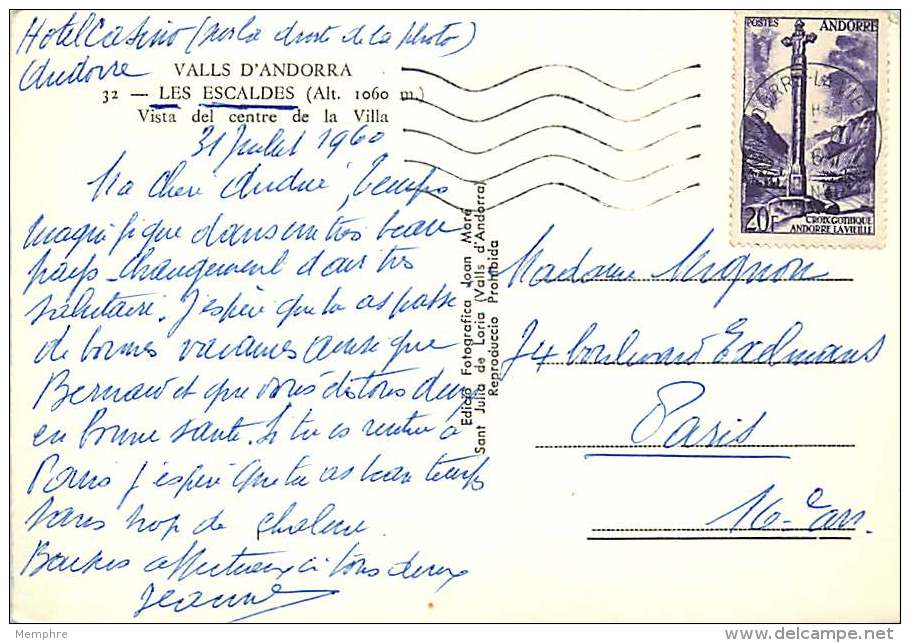 Hotel Casino (sur la droite de la photo)
Andorre
VALLS D'ANDORRA
32 — LES ESCALDES (Alt. 1060 m.)
Vista del centre de la Villa
31 Juillet 1960
Ma chère Andrée, temps
magnifique dans un très beau
pays - changement d'air très
salutaire. J'espère que tu as passé
de bonnes vacances ainsi que
Bernard et que vous êtes tous deux
en bonne santé. Si tu es rentrée à
Paris j'espère que tu as beau temps
sans trop de chaleur.
Baisers affectueux à tous deux
Jeanne
Edició Fotografica Joan Moré
Sant Julia de Loria (Valls d'Andorra)
Reproducció Prohibida
POSTES ANDORRE
20F
CROIX GOTHIQUE
ANDORRE LA VIEILLE
Madame Mignon
74 boulevard Exelmans
Paris
16e arr.
Memphre
delcampe.net